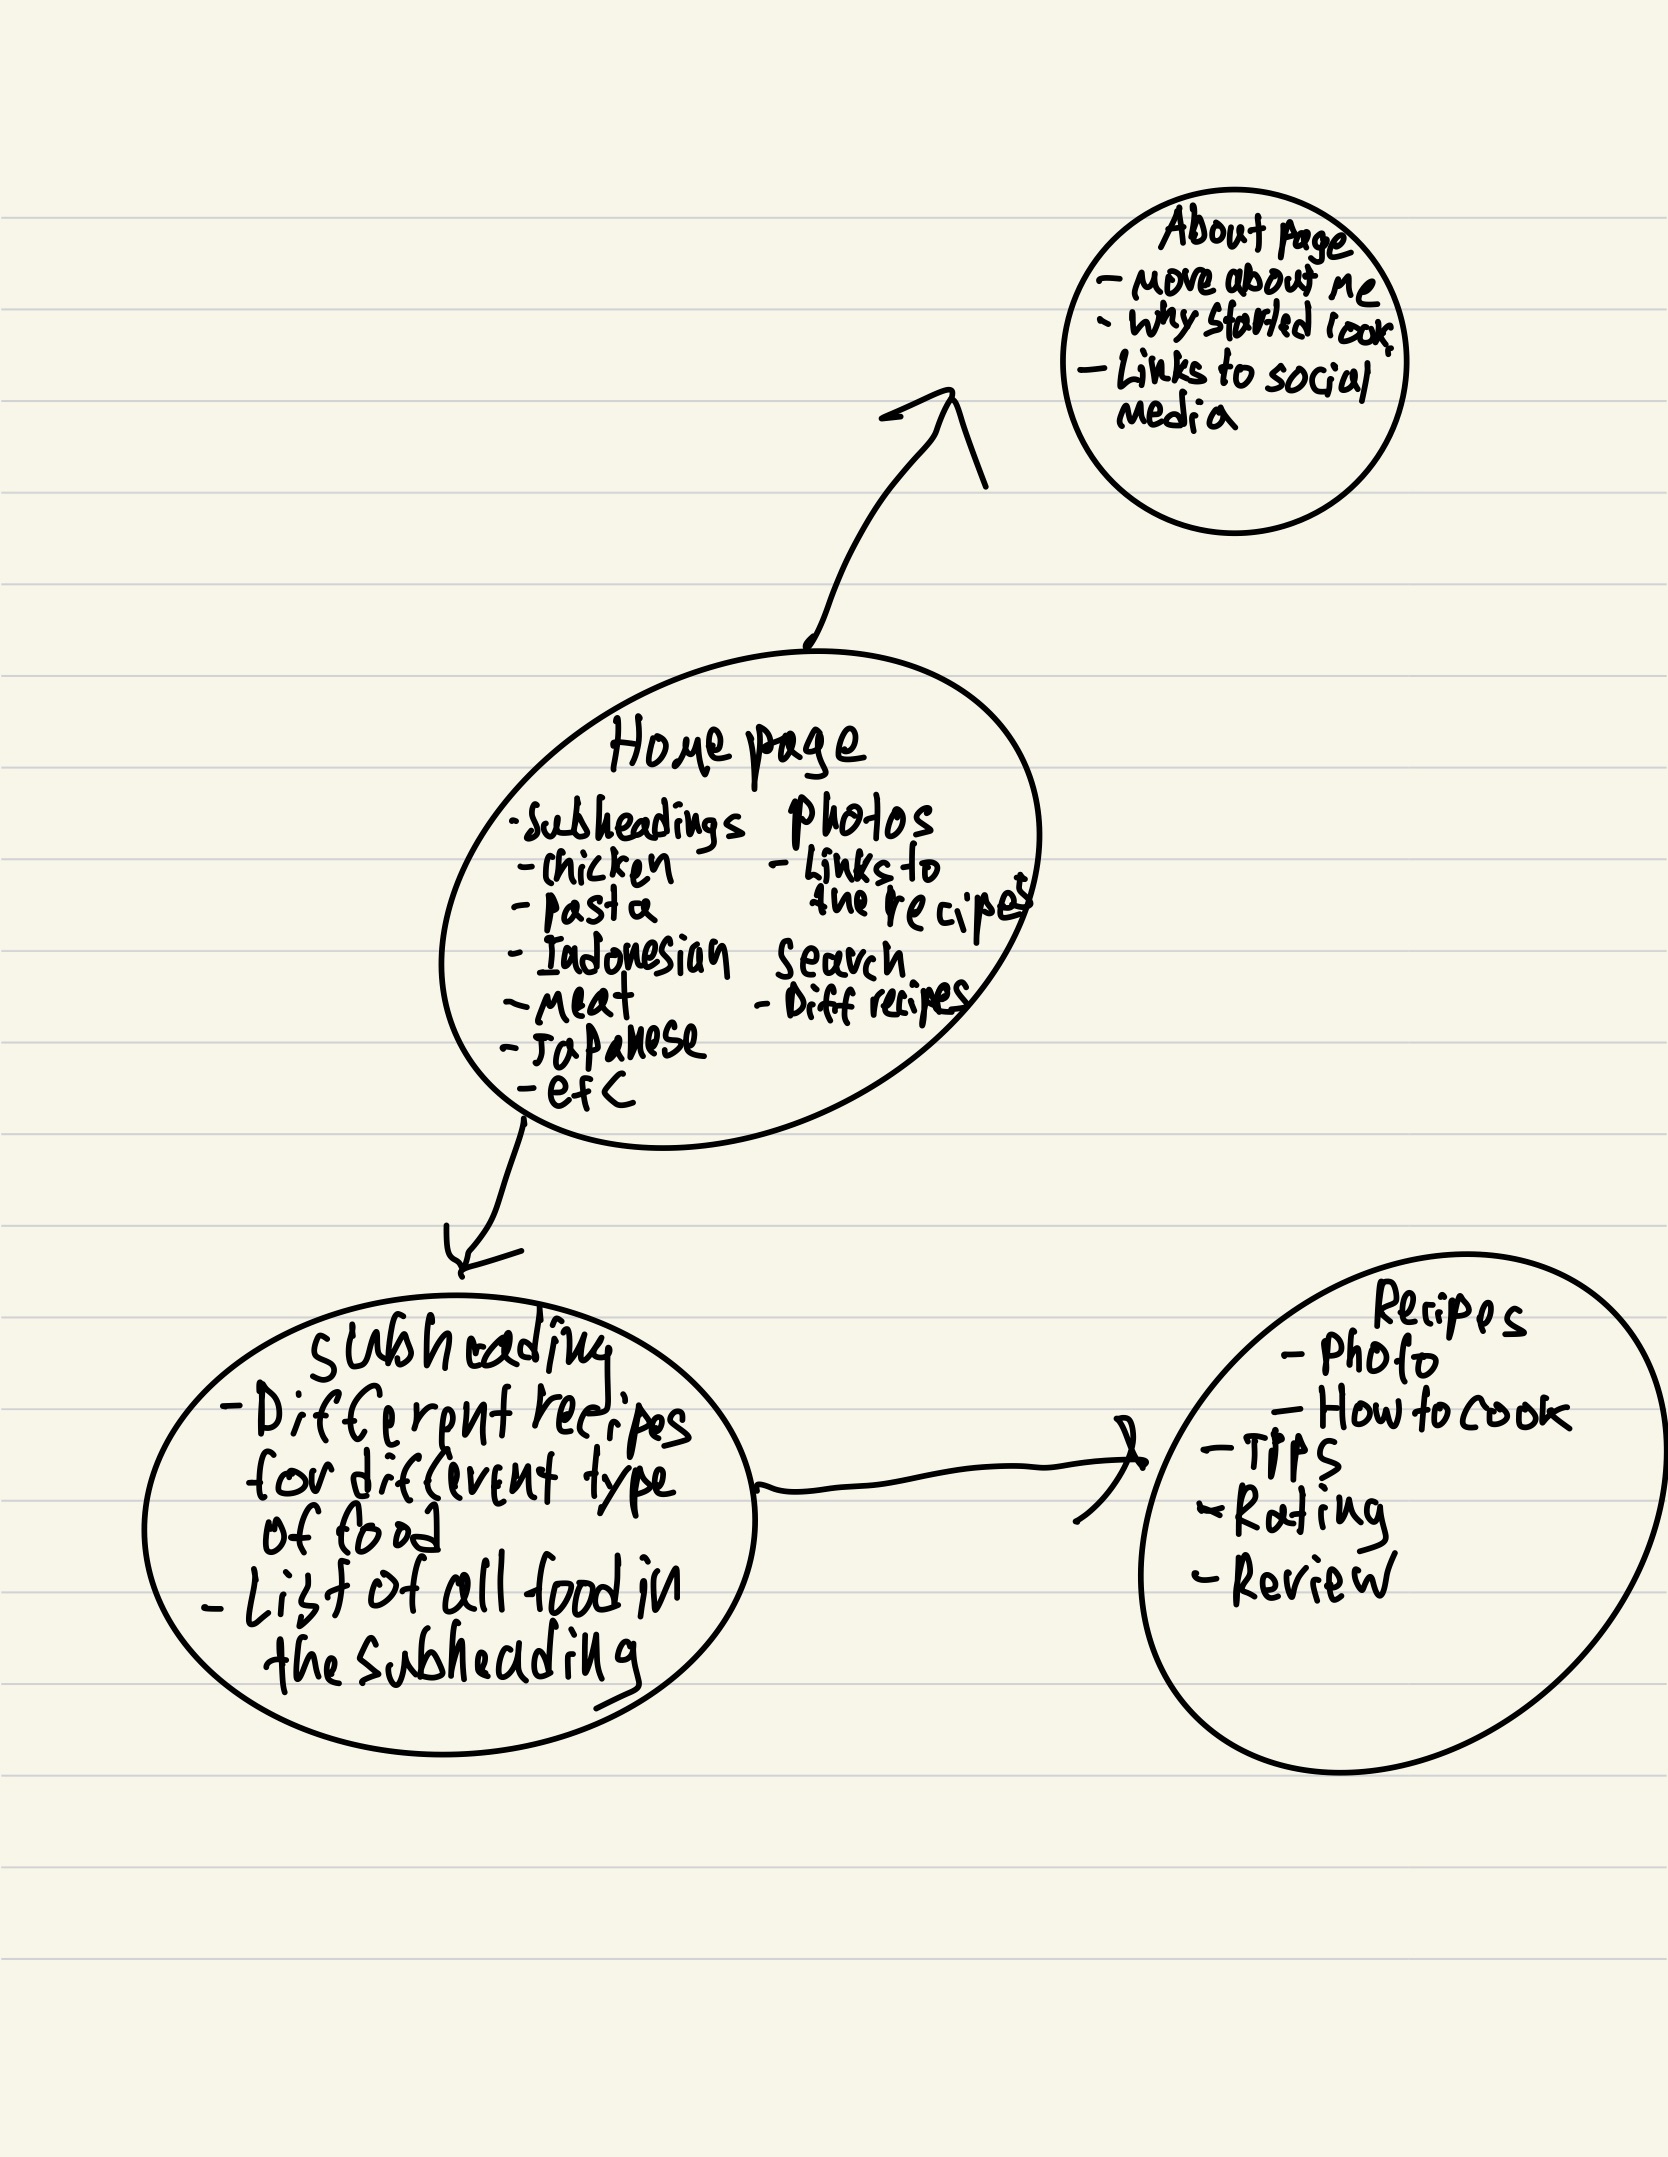 About page
- More about me
- Why started cook
- Links to social
media
Home page
- Subheadings
- chicken
- pasta
- Indonesian
- Meat
- Japanese
- etc
photos
- Links to
the recipes
Search
- Diff recipes
Subheading
- Different recipes
for different type
of food
- List of all food in
the subheading
Recipes
- Photo
- How to cook
- Tips
- Rating
- Review